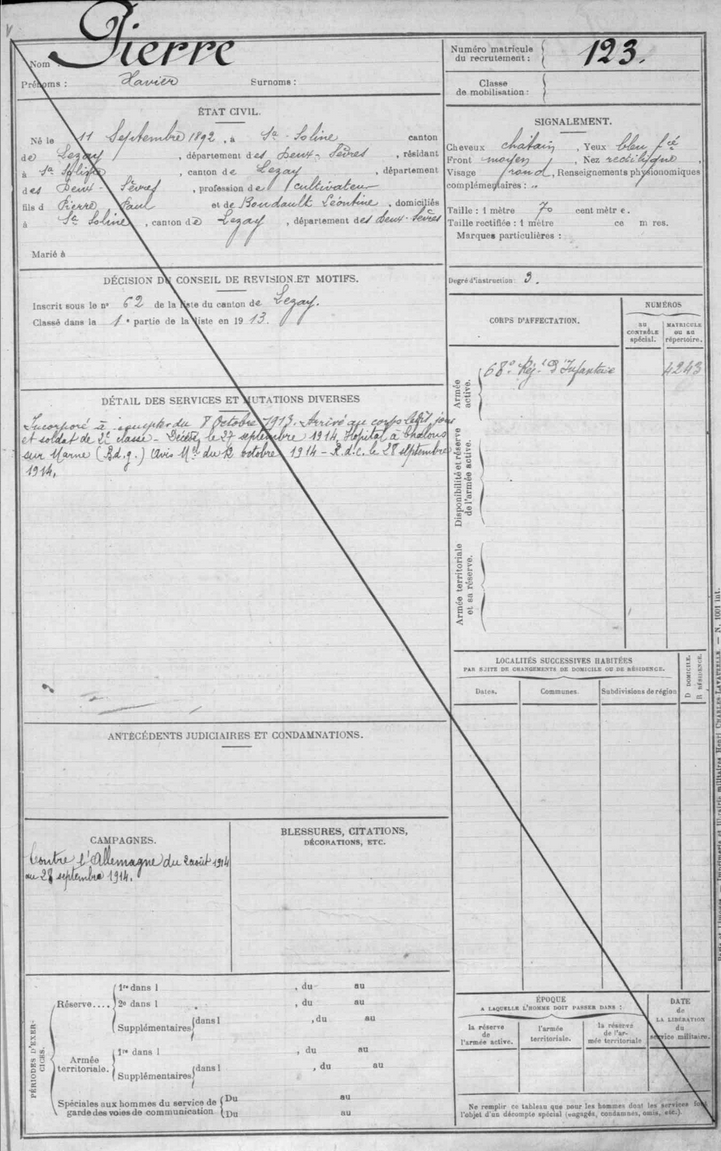 Pierre
Nom :
Prénoms : Xavier Surnoms :
Numéro matricule du recrutement : 123.
Classe de mobilisation :
ÉTAT CIVIL.
Né le 11 Septembre 1892, à Ste-Soline canton
de Lezay, département des Deux-Sèvres, résidant
à Ste Soline, canton de Lezay, département
des Deux-Sèvres, profession de cultivateur
fils d Pierre Paul et de Boudault Léontine, domiciliés
à Ste Soline, canton de Lezay, département des Deux-Sèvres
Marié à
SIGNALEMENT.
Cheveux châtain, Yeux bleu fcé
Front moyen, Nez rectiligne,
Visage rond, Renseignements physionomiques
complémentaires :
Taille : 1 mètre 70 centimètre.
Taille rectifiée : 1 mètre ce m res.
Marques particulières :
Degré d'instruction : 3.
DÉCISION DU CONSEIL DE REVISION ET MOTIFS.
Inscrit sous le n° 62 de la liste du canton de Lezay.
Classé dans la 1e partie de la liste en 1913.
DÉTAIL DES SERVICES ET MUTATIONS DIVERSES
Incorporé à compter du 8 octobre 1913. Arrivé au corps ledit jour
et soldat de 2e classe - Décédé le 27 septembre 1914 Hôpital à Chalons
sur Marne (B.d.g.) Avis Mel du 12 octobre 1914 - R.d.c. le 28 septembre
1914.
CORPS D'AFFECTATION.
NUMÉROS
AU CONTRÔLE spécial.
MATRICULE OU AU répertoire.
Armée active.
68e Régt d'Infanterie 4243
Disponibilité et réserve de l'armée active.
Armée territoriale et sa réserve.
LOCALITÉS SUCCESSIVES HABITÉES
PAR SUITE DE CHANGEMENTS DE DOMICILE OU DE RÉSIDENCE.
Dates. Communes. Subdivisions de région
D DOMICILE.
R RÉSIDENCE.
ANTÉCÉDENTS JUDICIAIRES ET CONDAMNATIONS.
CAMPAGNES.
Contre l'Allemagne du 2 août 1914
au 28 septembre 1914.
BLESSURES, CITATIONS,
DÉCORATIONS, ETC.
PÉRIODES D'EXERCICES.
Réserve....
1re dans l , du au
2e dans l , du au
Supplémentaires dans l , du au
Armée territoriale.
1re dans l , du au
Supplémentaires dans l , du au
Spéciales aux hommes du service de garde des voies de communication
Du au
Du au
ÉPOQUE
A LAQUELLE L'HOMME DOIT PASSER DANS :
la réserve de l'armée active.
l'armée territoriale.
la réserve de l'armée territoriale
DATE de LA LIBÉRATION du service militaire.
Ne remplir ce tableau que pour les hommes dont les services font
l'objet d'un décompte spécial (engagés, condamnés, omis, etc.)